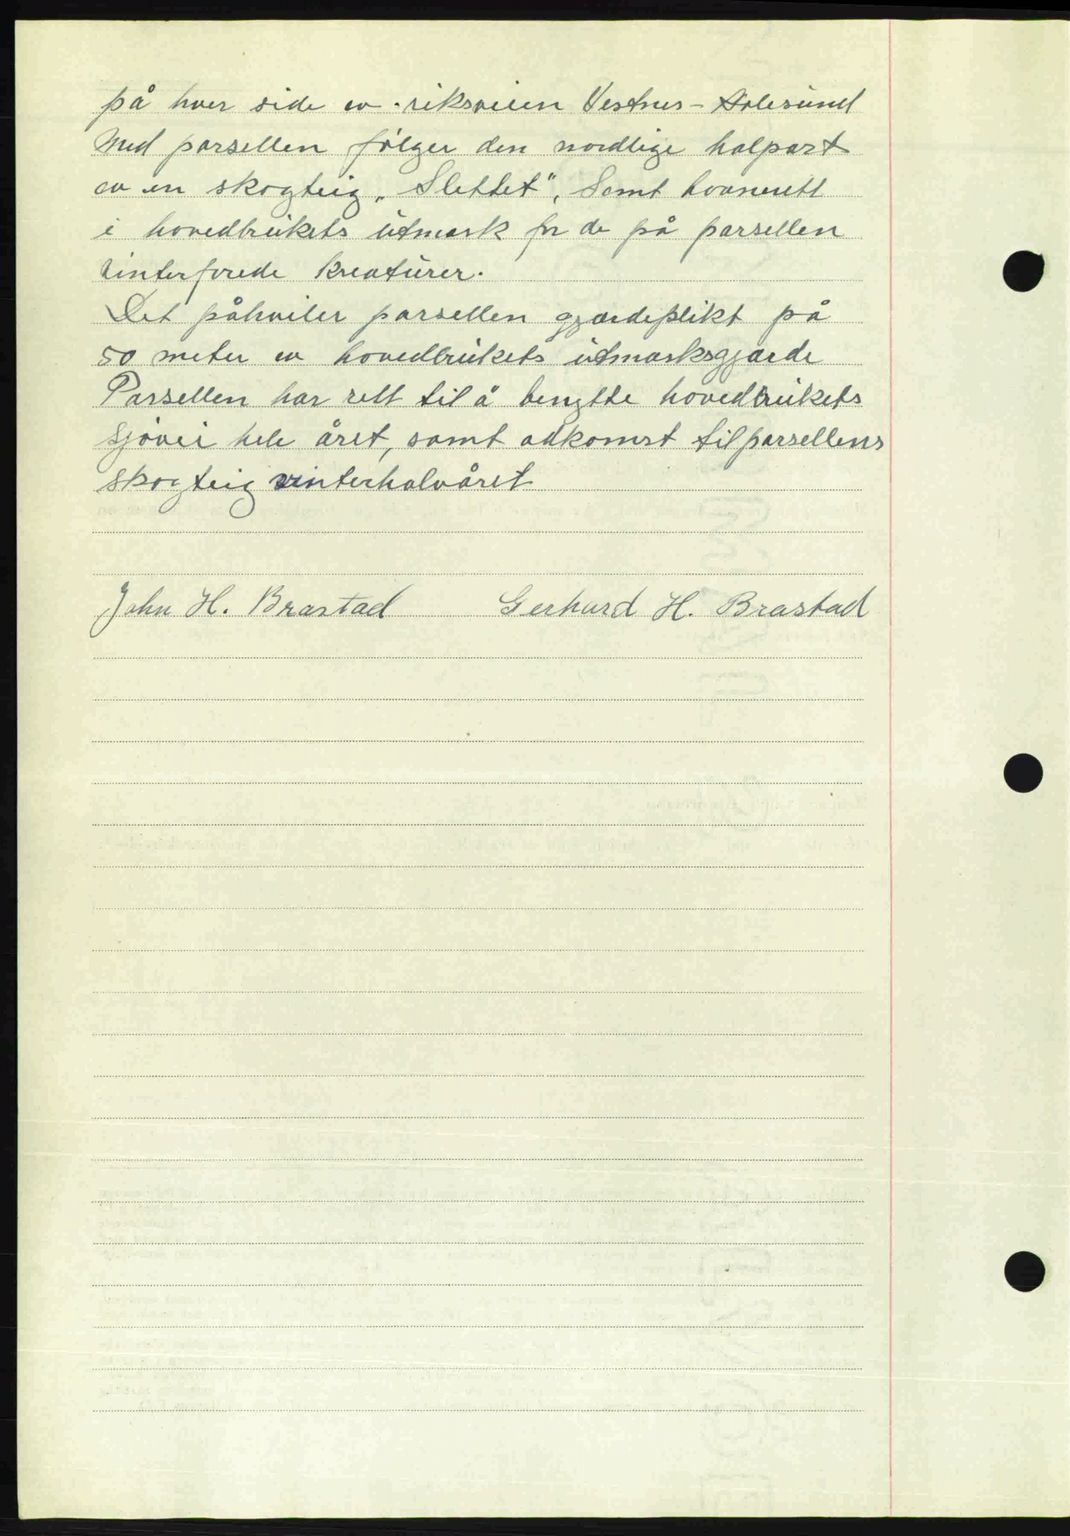 på hver side av riksveien Vestnes - Aalesund
Med parsellen følger den nordlige halpart
av en skogteig „Slettet", Samt havnerett
i hovedbrukets utmark for de på parsellen
vinterforede kreaturer.
Det påhviler parsellen gjærdeplikt på
50 meter av hovedbrukets utmarksgjærde
Parsellen har rett til å benytte hovedbrukets
sjøvei hele året, samt adkomst til parsellens
skogteig vinterhalvåret
John H. Brastad Gerhard H. Brastad